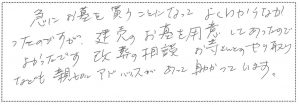 急にお墓を買うことになって よくわからなか
ったのですが、建売のお墓を用意してあったので
よかったです 改葬の相談 お寺さんとのやり取り
なども 親切に アドバイスが あって 助かっています。